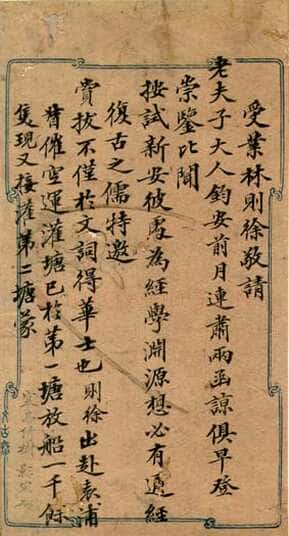 受業林則徐敬請
老夫子大人鈞安前月連肅兩函諒俱早登
崇鑒比聞
按試新安彼處為經學淵源想必有通經
復古之儒特邀
賞拔不僅於文詞得華士也則徐出赴袁浦
督催空運灌塘已於第一塘放船一千餘
隻現又接灌第二塘蒙